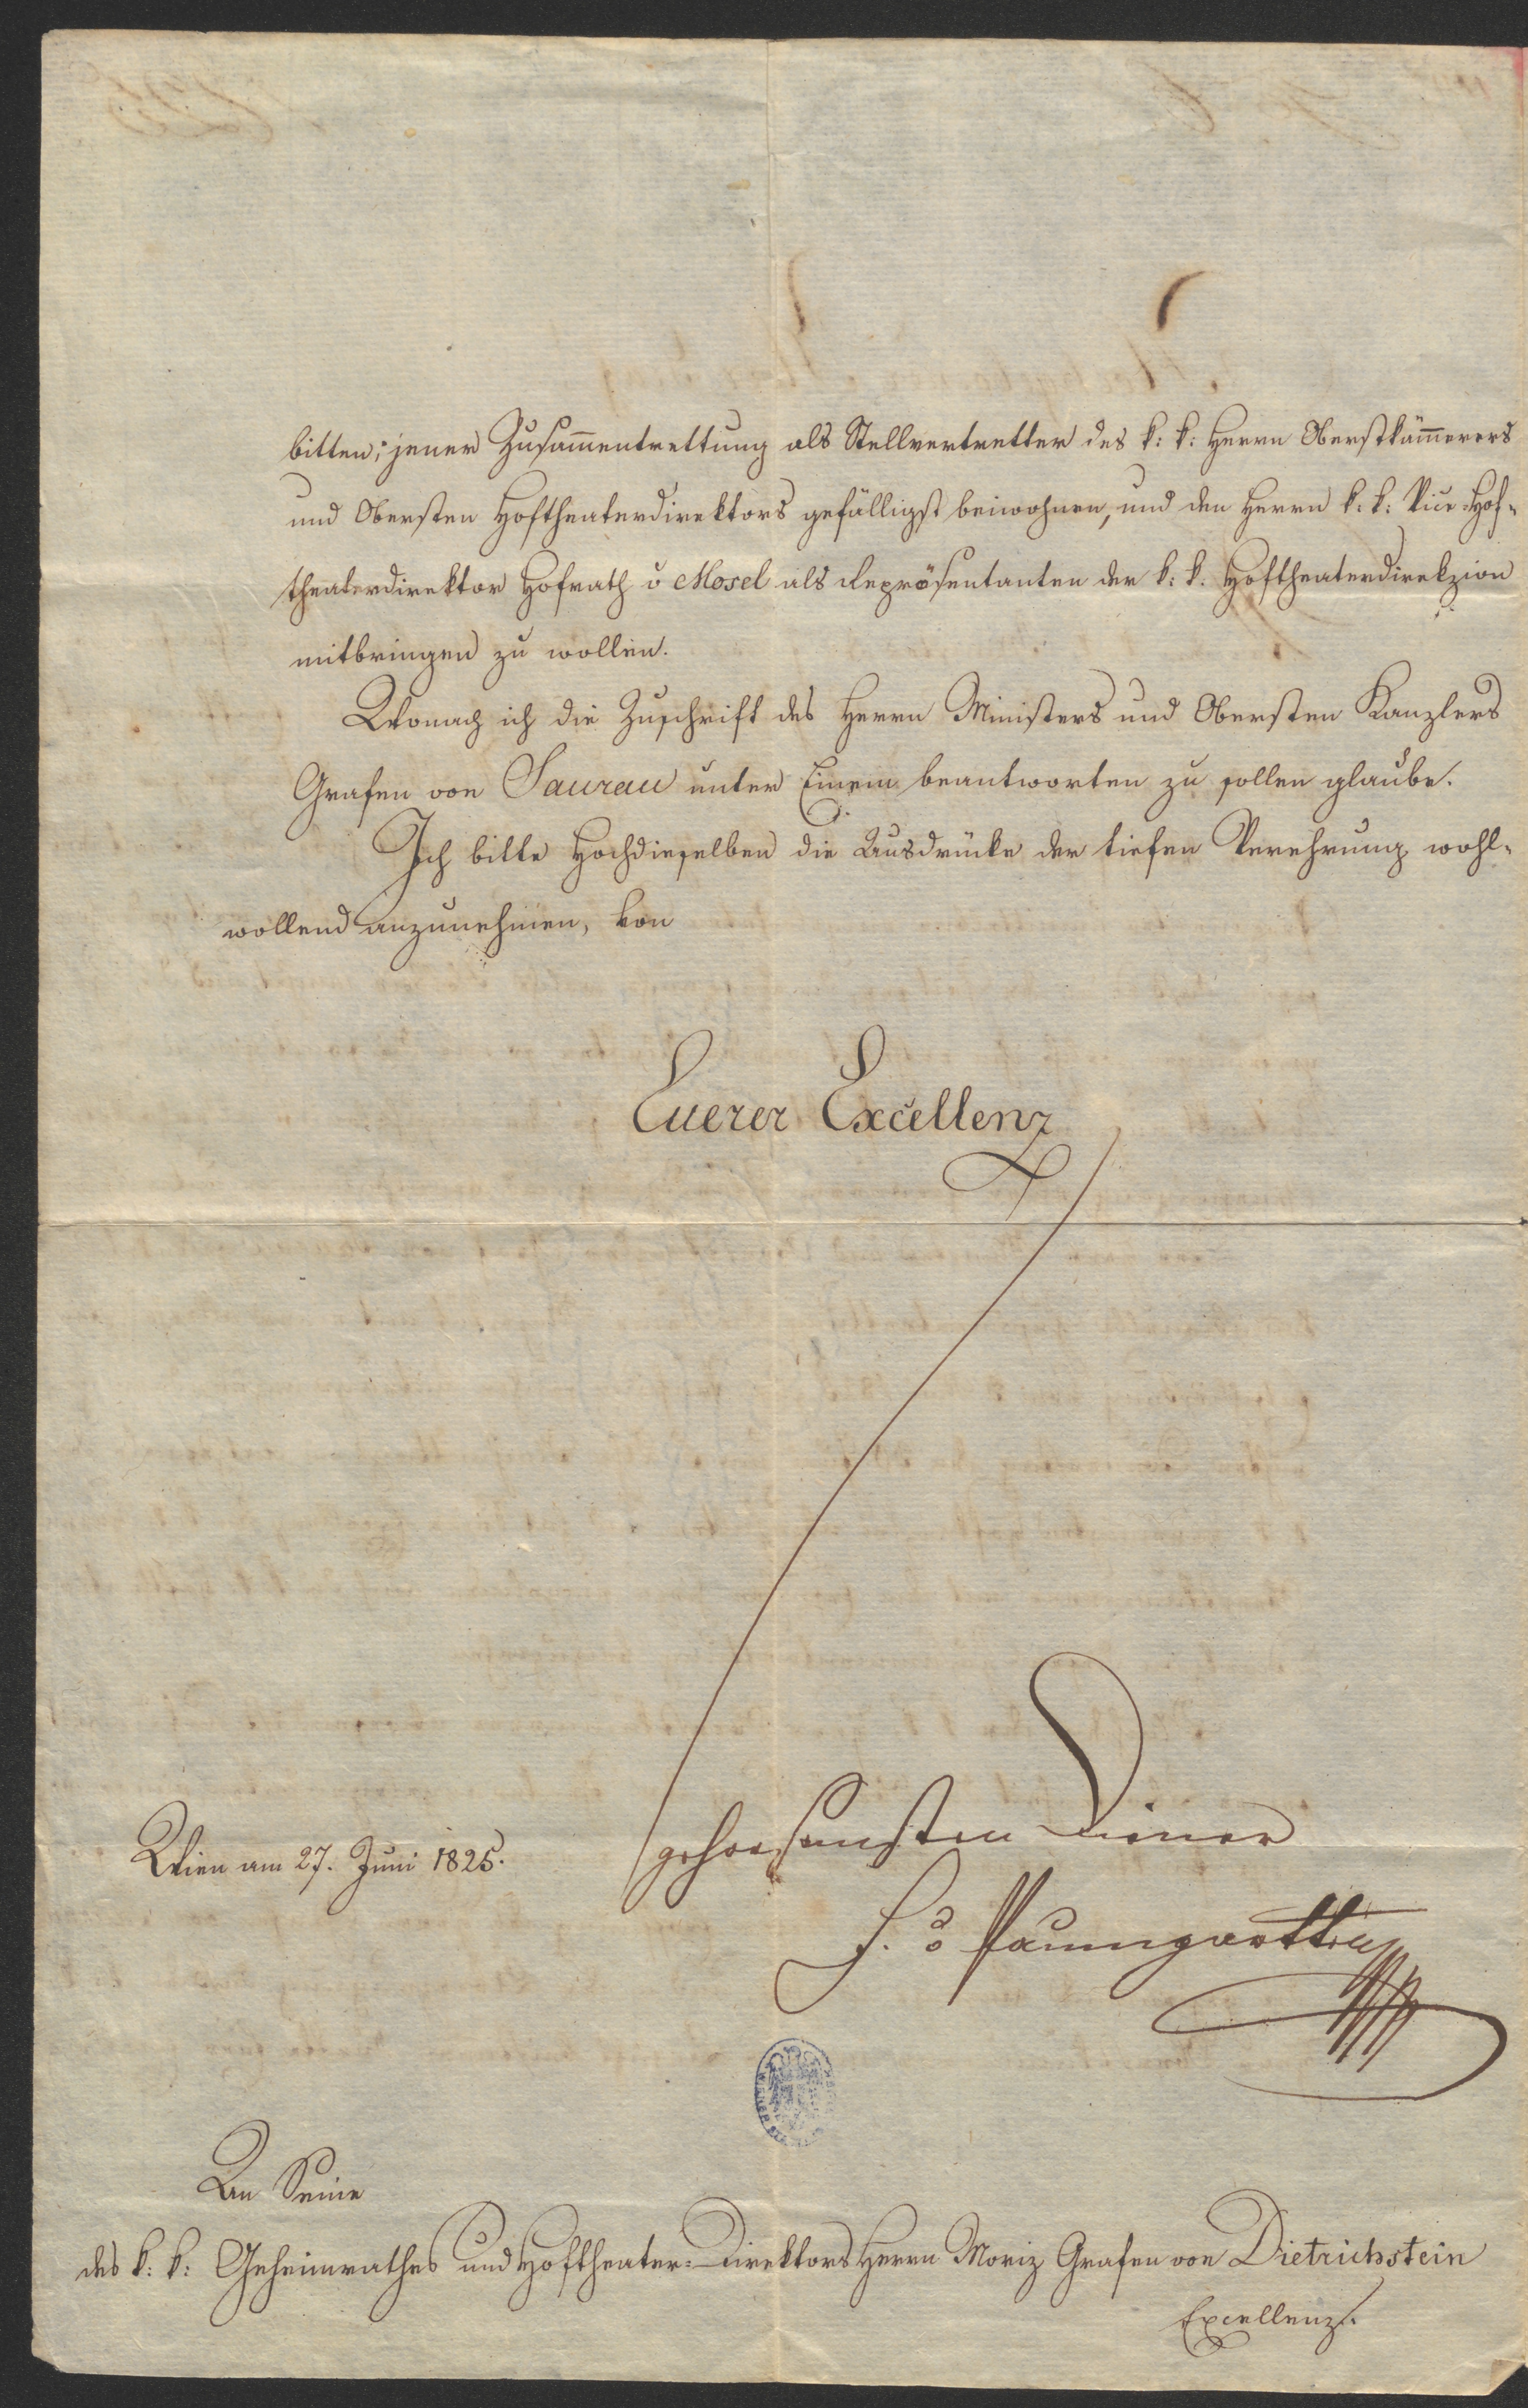 bitten; jener Zusam̅entrettung als Stellvertretter des k: k: Herrn Oberstkäm̅erers
und Obersten Hoftheaterdirektors gefälligst beiwohnen, und den Herrn k: k: Vice-Hof-
theaterdirektor Hofrath v Mosel als Repräsentanten der k: k: Hoftheaterdirekzion
mitbringen zu wollen.
Wonach ich die Zuschrift des Herrn Ministers und Obersten Kanzlers
Grafen von Saurau unter Einem beantworten zu sollen glaube.
Ich bitte Hochdieselben die Ausdrücke der tiefen Verehrung wohl-
wollend anzunehmen, von
Euerer Excellenz
gehorsamsten Diener
Wien am 27. Juni 1825.
J. v Paumgartten
An Seine
des k: k: Geheimrathes und Hoftheater-Direktors Herrn Moriz Grafen von Dietrichstein
Excellenz.